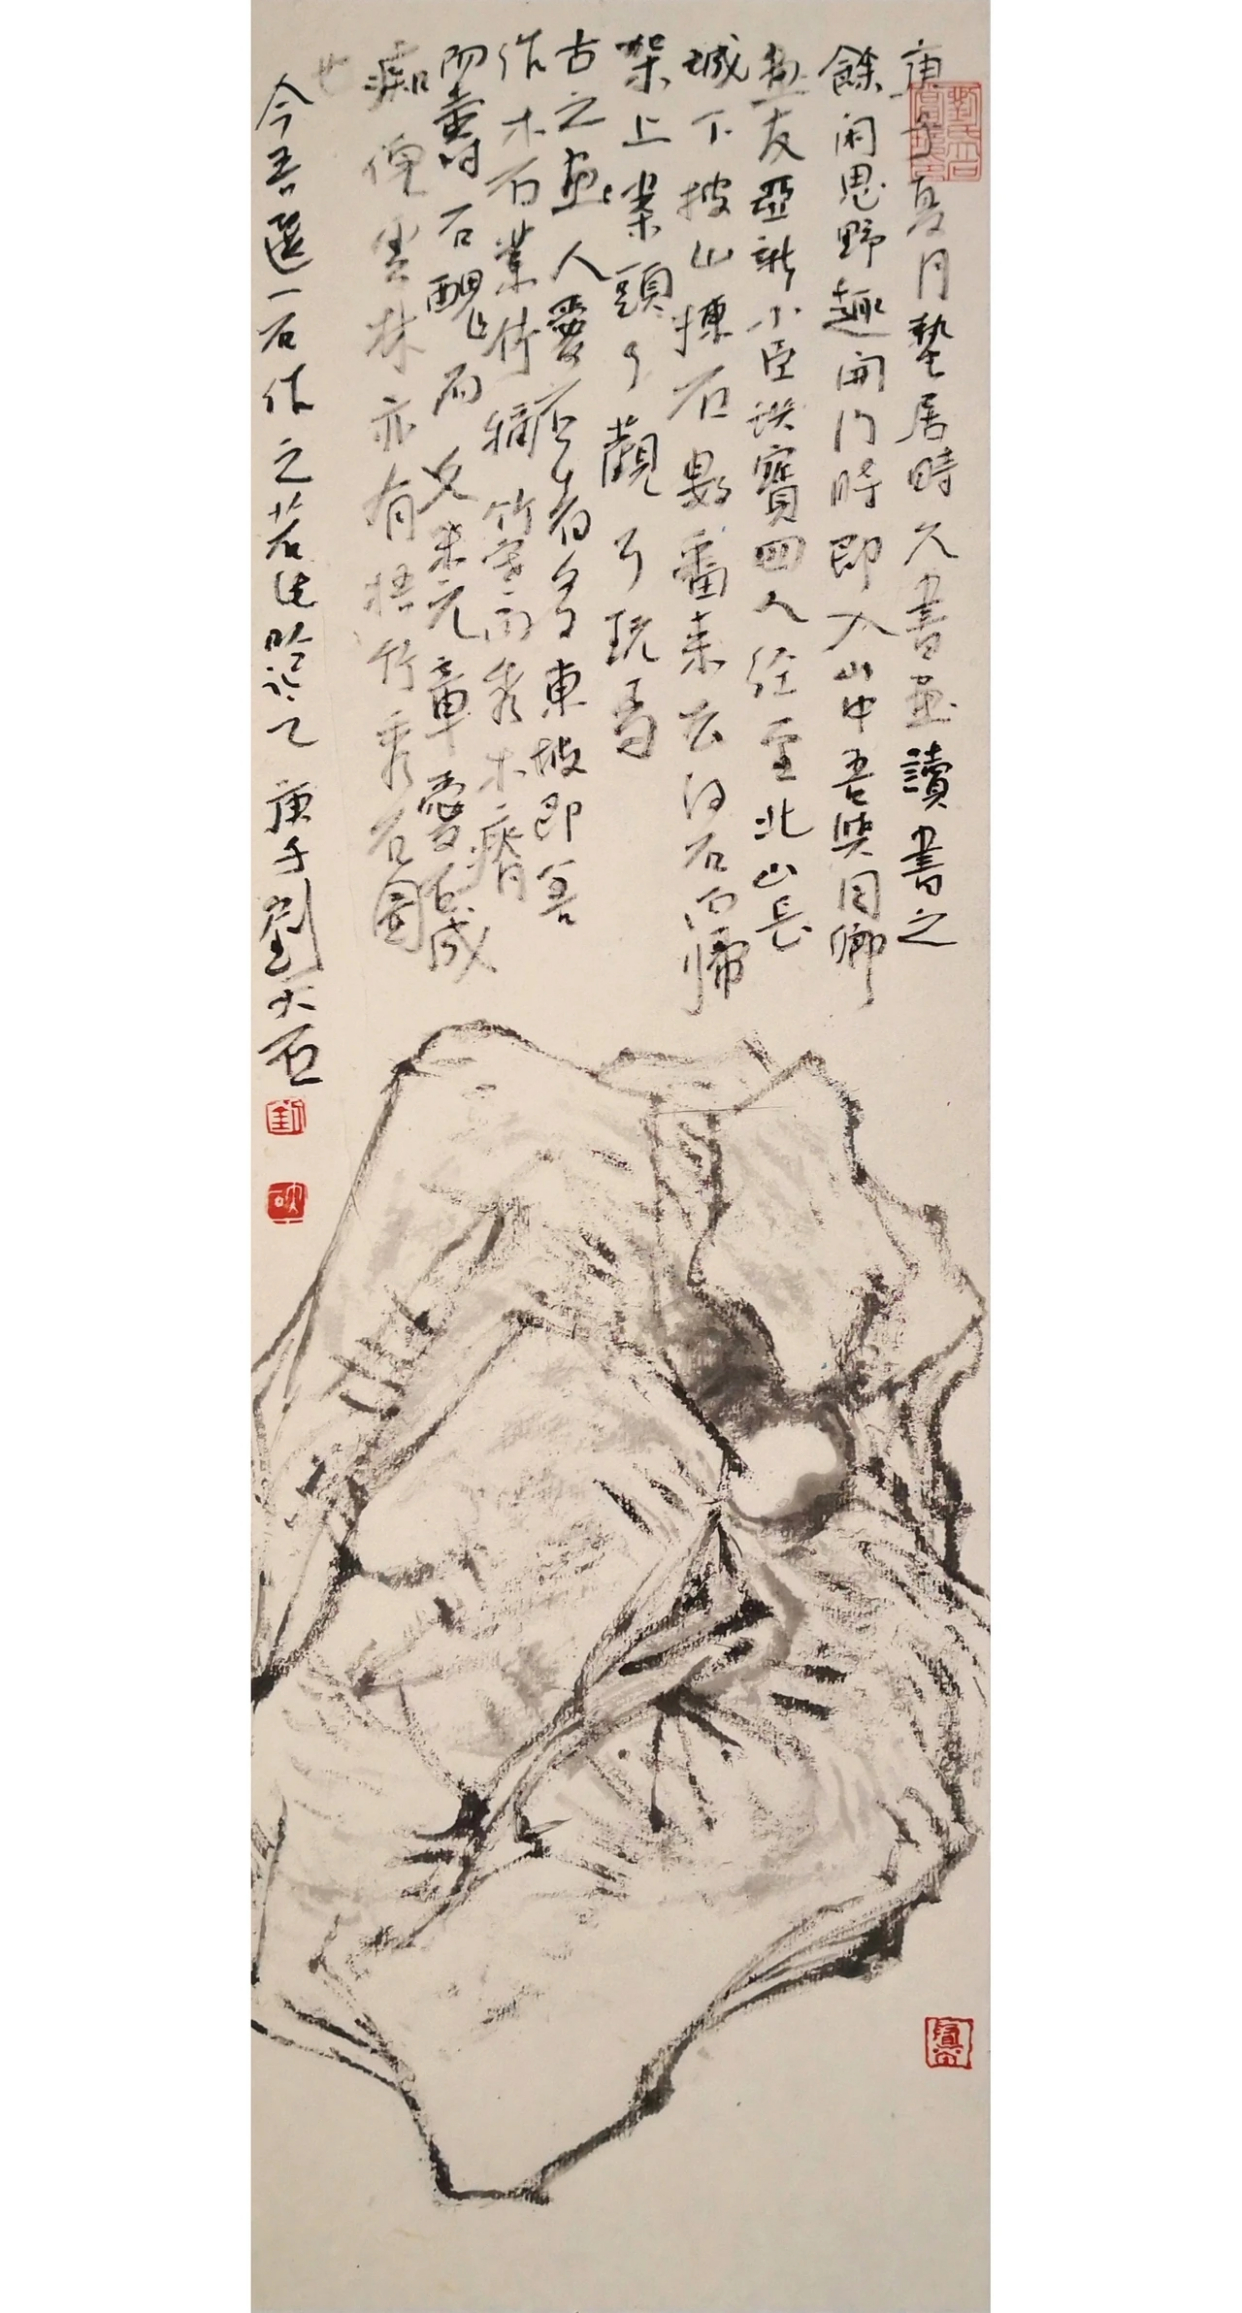 庚子夏月蟄居時久書畫讀書之
餘闲思野趣開门時即入山中吾與同鄉
畫友亞新小臣洪寶四人经至北山長
城下披山揀石數番来去得石而歸
架上案頭可觀可玩焉
古之畫人愛石者多東坡即善
作木石叢竹稱竹寒而秀木瘠
而壽石醜而文米元章愛石成
痴倪雲林亦有梧竹秀石圖
也
今吾選一石作之若先
庚子劉大石